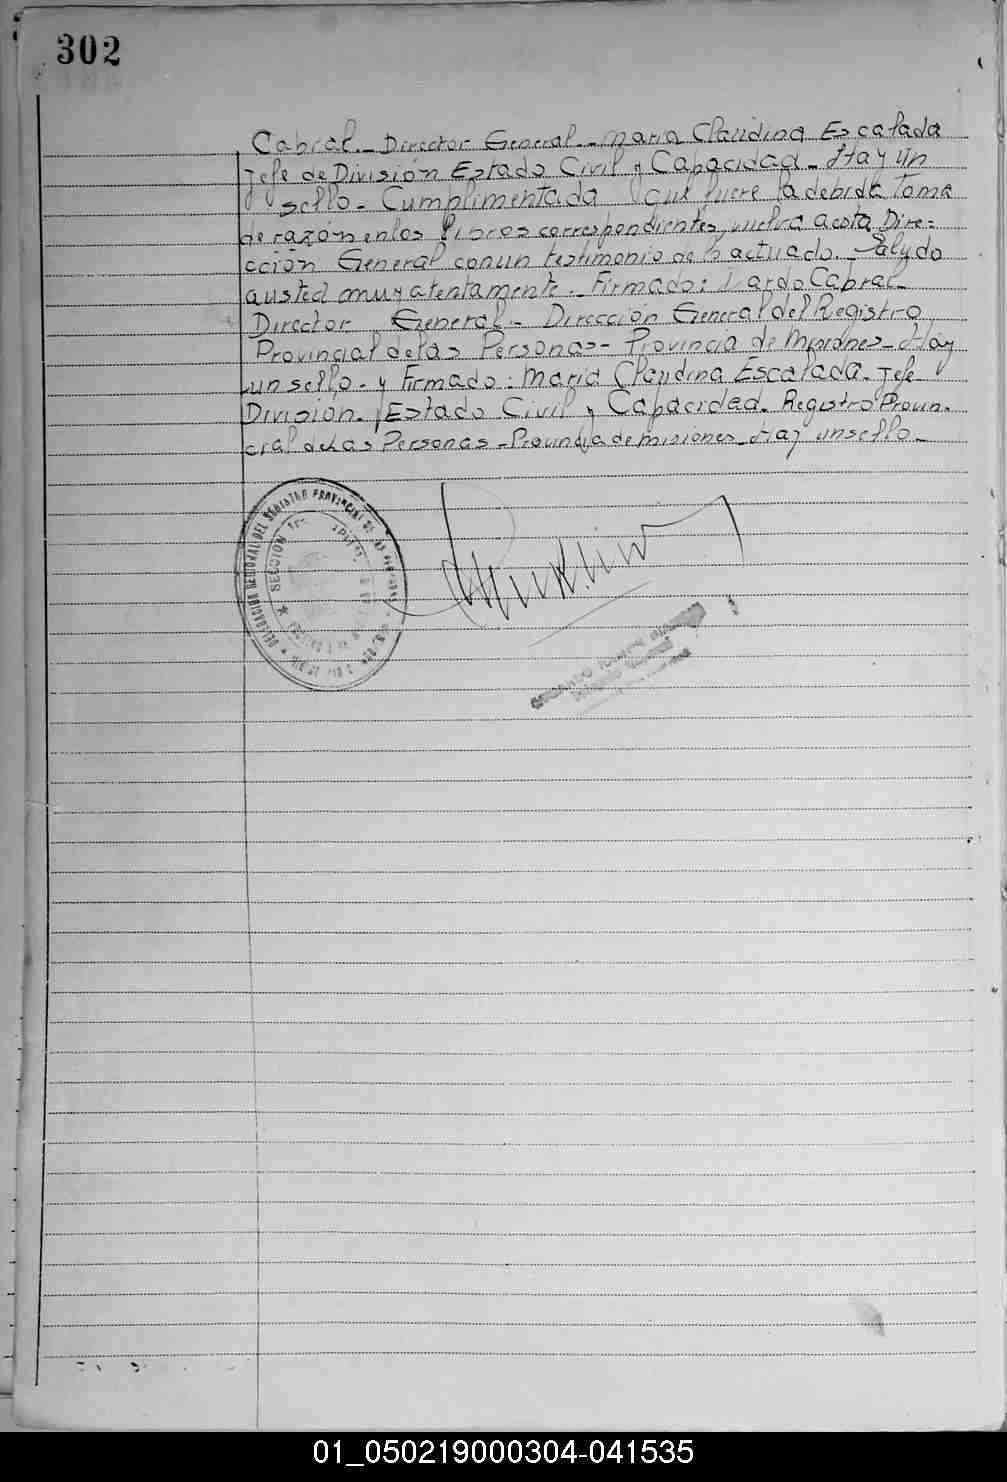 302
Cabral._ Director General._ Maria Claudina Escalada
Jefe de División Estado Civil y Capacidad_ Hay un
sello_ Cumplimentada que fuere la debida toma
de razón en los libros correspondientes, vuelva a esta Dire=
cción General con un testimonio de lo actuado._ Saludo
a usted muy atentamente._ Firmado: Cabral_
Director General_ Dirección General del Registro
Provincial de las Personas_ Provincia de Misiones_ Hay
un sello_ y Firmado: Maria Claudina Escalada. Jefe
División. Estado Civil y Capacidad. Registro Provin.
cial de las Personas_Provincia de misiones_Hay un sello_
DELEGACION REGIONAL DEL REGISTRO PROVINCIAL DE LAS PERSONAS
SECCION
01_050219000304-041535